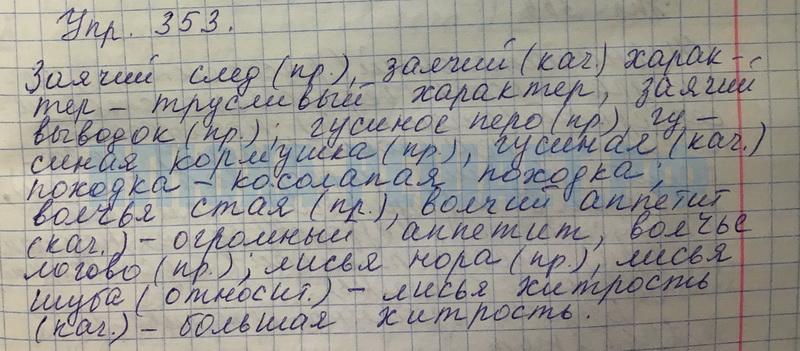 Упр. 353.
Заячий след (пр.), заячий (кач.) харак-
тер – трусливый характер, заячий
выводок (пр.); гусиное перо (пр.), гу-
синая кормушка (пр), гусиная (кач.)
походка – косолапая походка;
волчья стая (пр.), волчий аппетит
(кач.) – огромный аппетит, волчье
логово (пр.); лисья нора (пр.), лисья
шуба (относит.) – лисья хитрость
(кач.) – большая хитрость.